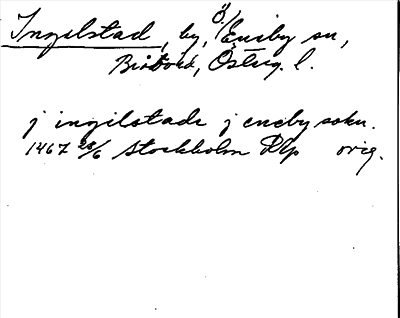 Ingilstad, by, Ö/Eneby sn,
Bråbord, Österg. l.
j ingilstadi j eneby sokn.
1467 28/6 Stockholm RAp orig.